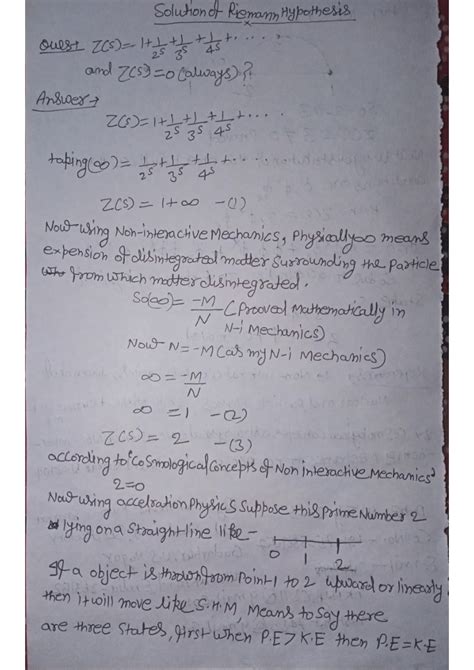 Solution of Riemann Hypothesis
Quest Z(s) = 1 + 1/2^s + 1/3^s + 1/4^s + ....
and Z(s) = 0 (always)?
Answer →
Z(s) = 1 + 1/2^s + 1/3^s + 1/4^s + ....
taping(∞) = 1/2^s + 1/3^s + 1/4^s + ....
Z(s) = 1+∞ -(1)
Now using Non-interactive Mechanics, Physically ∞ means
expension of disintegrated matter surrounding the particle
from which matter disintegrated.
So(∞) = -M/N (Prooved Mathematically in
N-i Mechanics)
Now N = -M (as my N-i Mechanics)
∞ = -M/N
∞ = 1 -(2)
Z(s) = 2 -(3)
according to 'Cosmological Concepts of Non interactive Mechanics'
2=0
Now using accelration Physics Suppose this Prime Number 2
lying on a Straight line like-
0 1 2
If a object is thrown from Point 1 to 2 upward or linearly
then it will move like S.H.M, Means to Say there
are three States, first when P.E > K.E then P.E = K.E